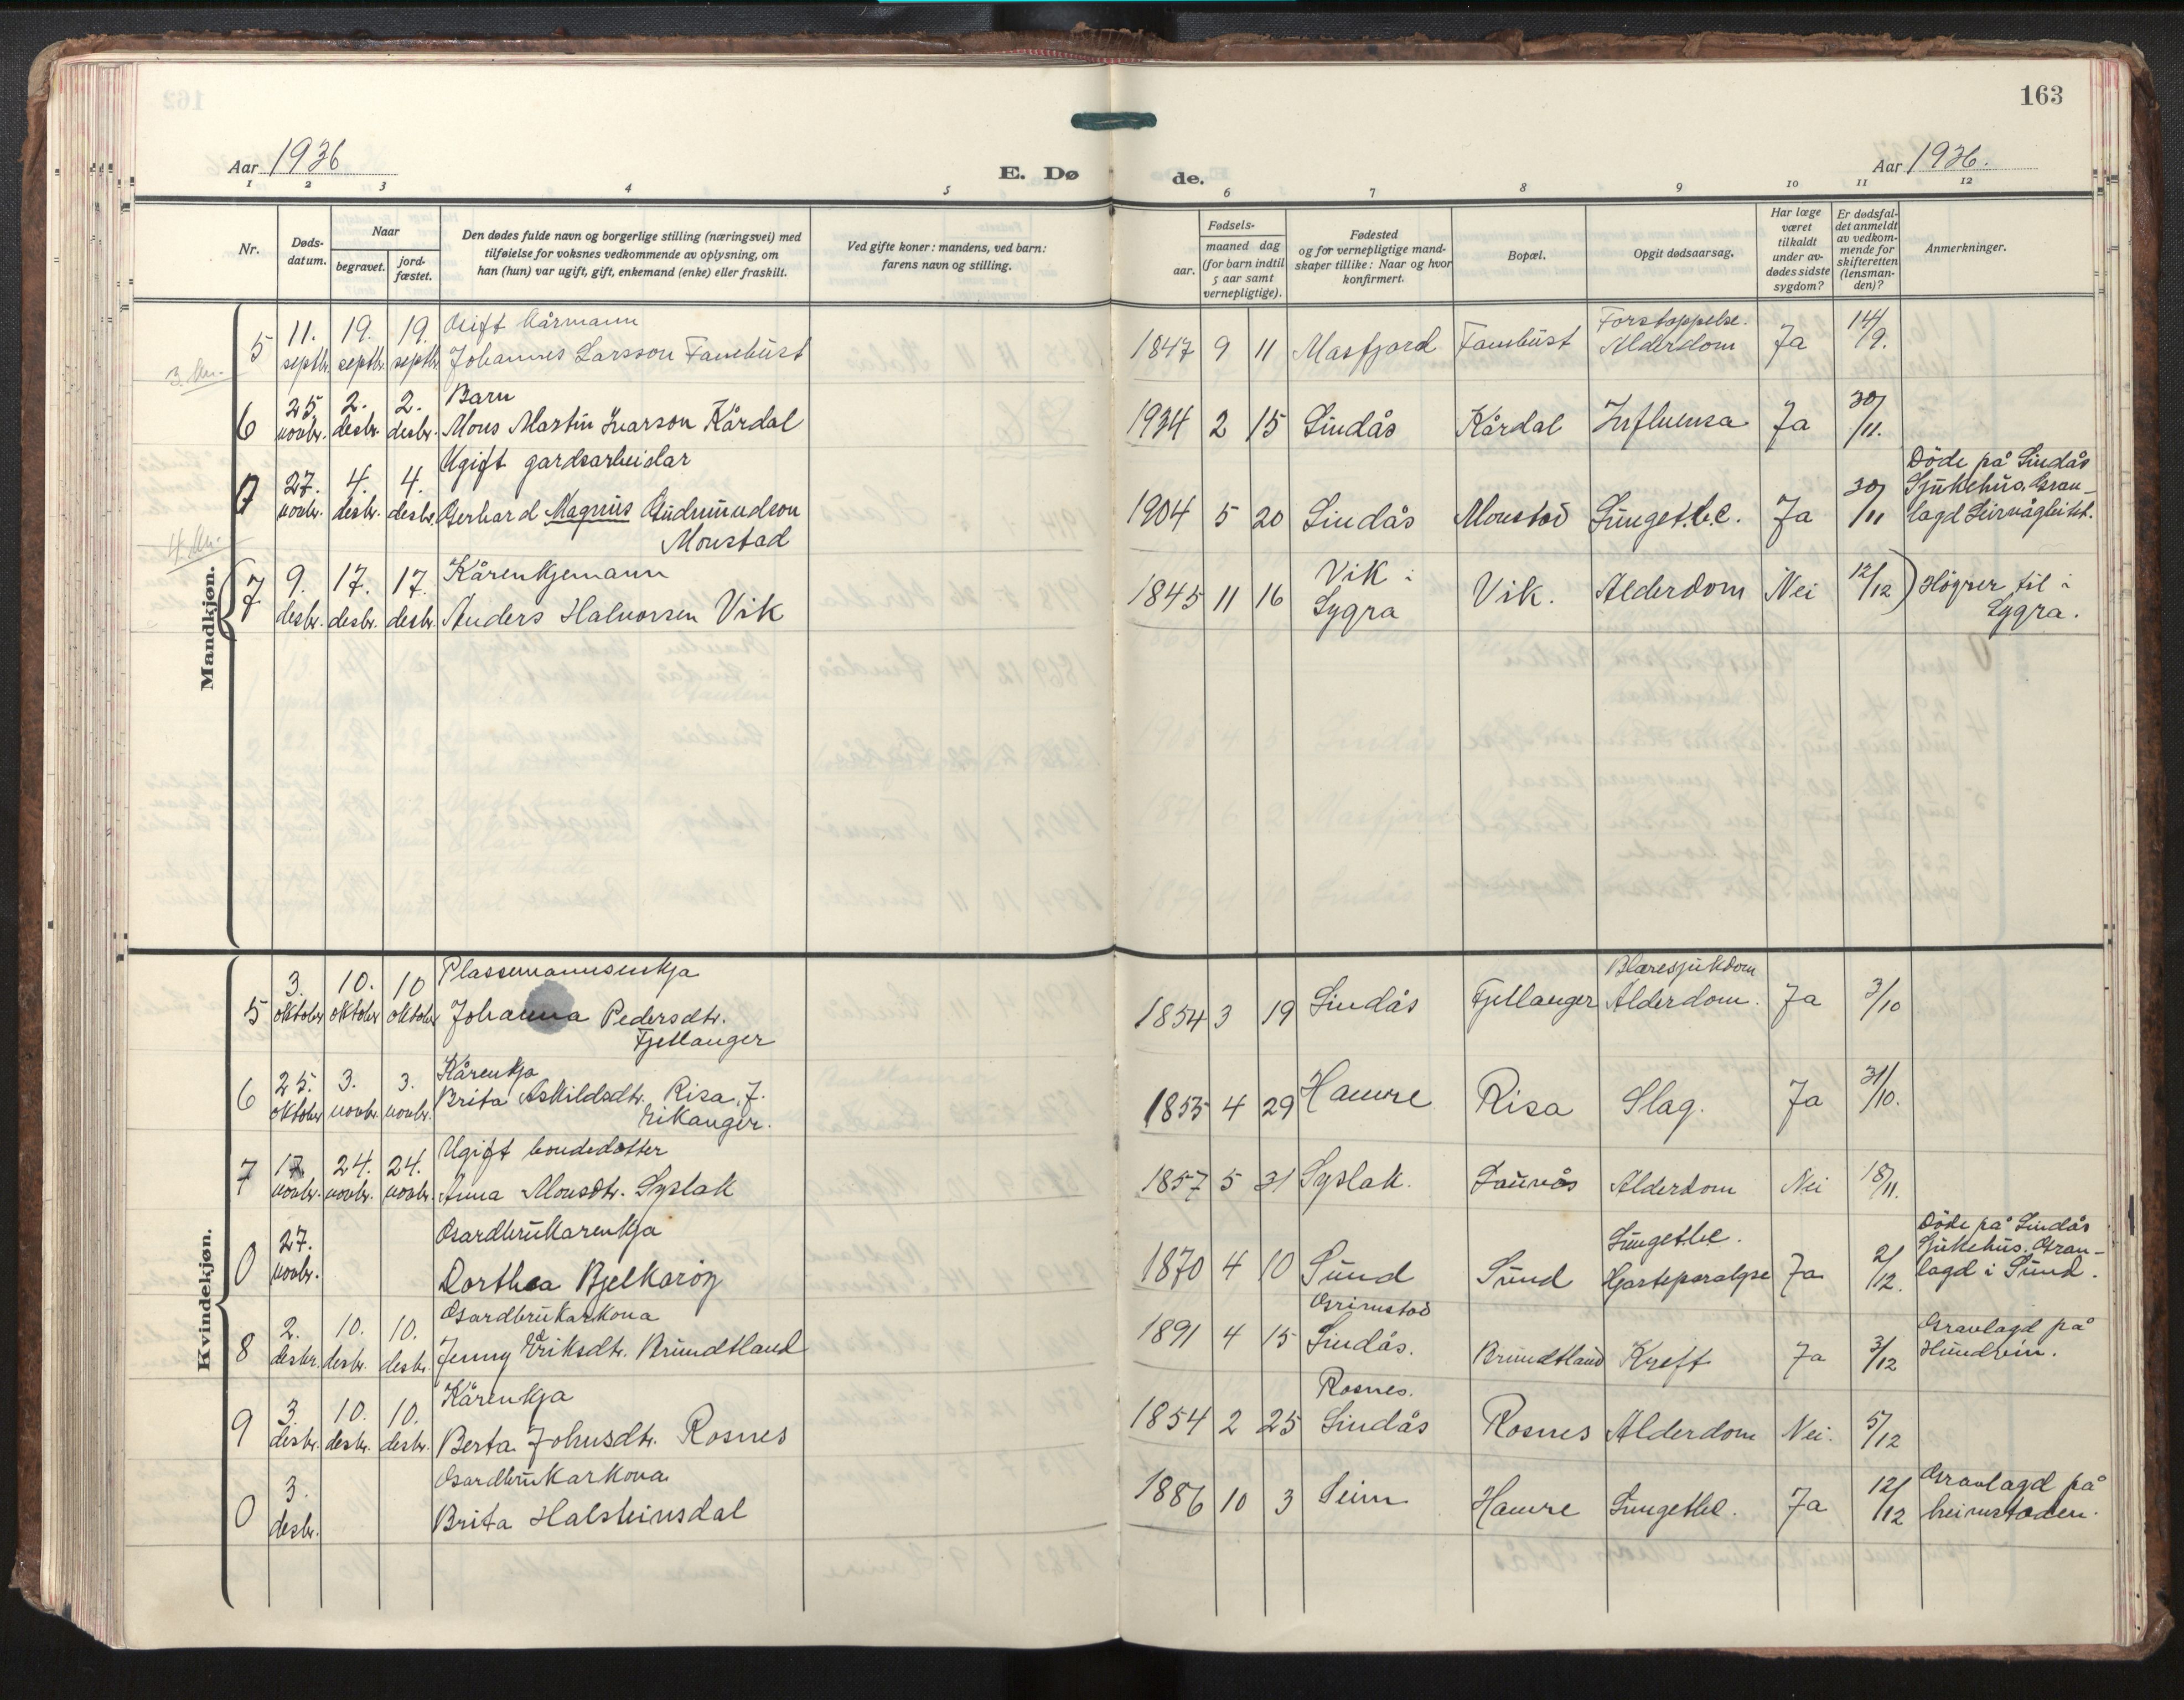 163
Aar 1936
E. Dø
de.
Aar 1936.
1 2 3 4 5 6 7 8 9 10 11 12
Nr.
Døds-
datum.
Naar
begravet.
jord-
fæstet.
Den dødes fulde navn og borgerlige stilling (næringsvei) med
tilføielse for voksnes vedkommende av oplysning, om
han (hun) var ugift, gift, enkemand (enke) eller fraskilt.
Ved gifte koner: mandens, ved barn:
farens navn og stilling.
Fødsels-
aar.
maaned dag
(for barn indtil
5 aar samt
vernepligtige).
Fødested
og for vernepligtige mand-
skaper tillike: Naar og hvor
konfirmert.
Bopæl.
Opgit dødsaarsag.
Har læge
været
tilkaldt
under av-
dødes sidste
sygdom?
Er dødsfal-
det anmeldt
av vedkom-
mende for
skifteretten
(lensman-
den)?
Anmerkninger.
Mandkjøn.
Gift kårmann Forstoppelse.
5 11. septbr. 19. septbr. 19. septbr. Johannes Larsson Fanebust 1847 9 11 Masfjord Fanebust Alderdom Ja 14/9.
Barn
6 25. novbr. 2. desbr. 2. desbr. Mons Martin Ivarson Kårdal 1934 2 15 Lindås Kårdal Influensa Ja 30/11.
Ugift gardsarbeidar Döde på Lindås
Sjukehus. Grav-
27. novbr. 4. desbr. 4. desbr. Gerhard Magnus Gudmundson 1904 5 20 Lindås Monstad Lungetb.c. Ja 30/11 lagd
Monstad
Kårenkjemann Vik i
7 9. desbr. 17. desbr. 17. desbr. Anders Halvorsen Vik 1845 11 16 Lygra Vik. Alderdom Nei 12/12 Högrer til i
Lygra.
Kvindekjøn.
Plassemannsenkja Blæresjukdom
5 3. oktober 10. oktober 10 oktober Johanna Pedersdtr. 1854 3 19 Lindås Fjellanger Alderdom. Ja 3/10
Fjellanger
Kårenkja
6 25. oktober 3. novbr. 3. novbr. Brita Askildsdtr. Risa, f. 1853 4 29 Hamre Risa Slag. Ja 31/10.
Eikanger.
Ugift bondedotter
7 17 novbr. 24. novbr. 24. novbr. Anna Monsdtr. Syslak 1857 5 31 Syslak. Alderdom Nei 18/11.
Gardbrukarenkja Lungetbc. Döde på Lindås
Sjukehus. Grav-
0 27. novbr. Dorthea Bjelkarøy 1870 4 10 Sund Sund Hjarteparalyse Ja 2/12. lagd i Sund.
Gardbrukarkona Grimstad Gravlagd på
8 2. desbr. 10. desbr. 10. desbr. Jenny Eriksdtr. Brundtland 1891 4 15 Lindås. Brundtland Kreft Ja 3/12 Hundvin.
Kårenkja Rosnes.
9 3. desbr. 10. desbr. 10. desbr. Berta Johnsdtr. Rosnes 1854 2 25 Lindås Rosnes Alderdom Nei. 5/12
Gardbrukarkona Gravlagd på
0 3. desbr. Brita Halsteinsdal 1886 10 3 Seim Hamre Lungetbc. Ja 12/12 heimstaden.